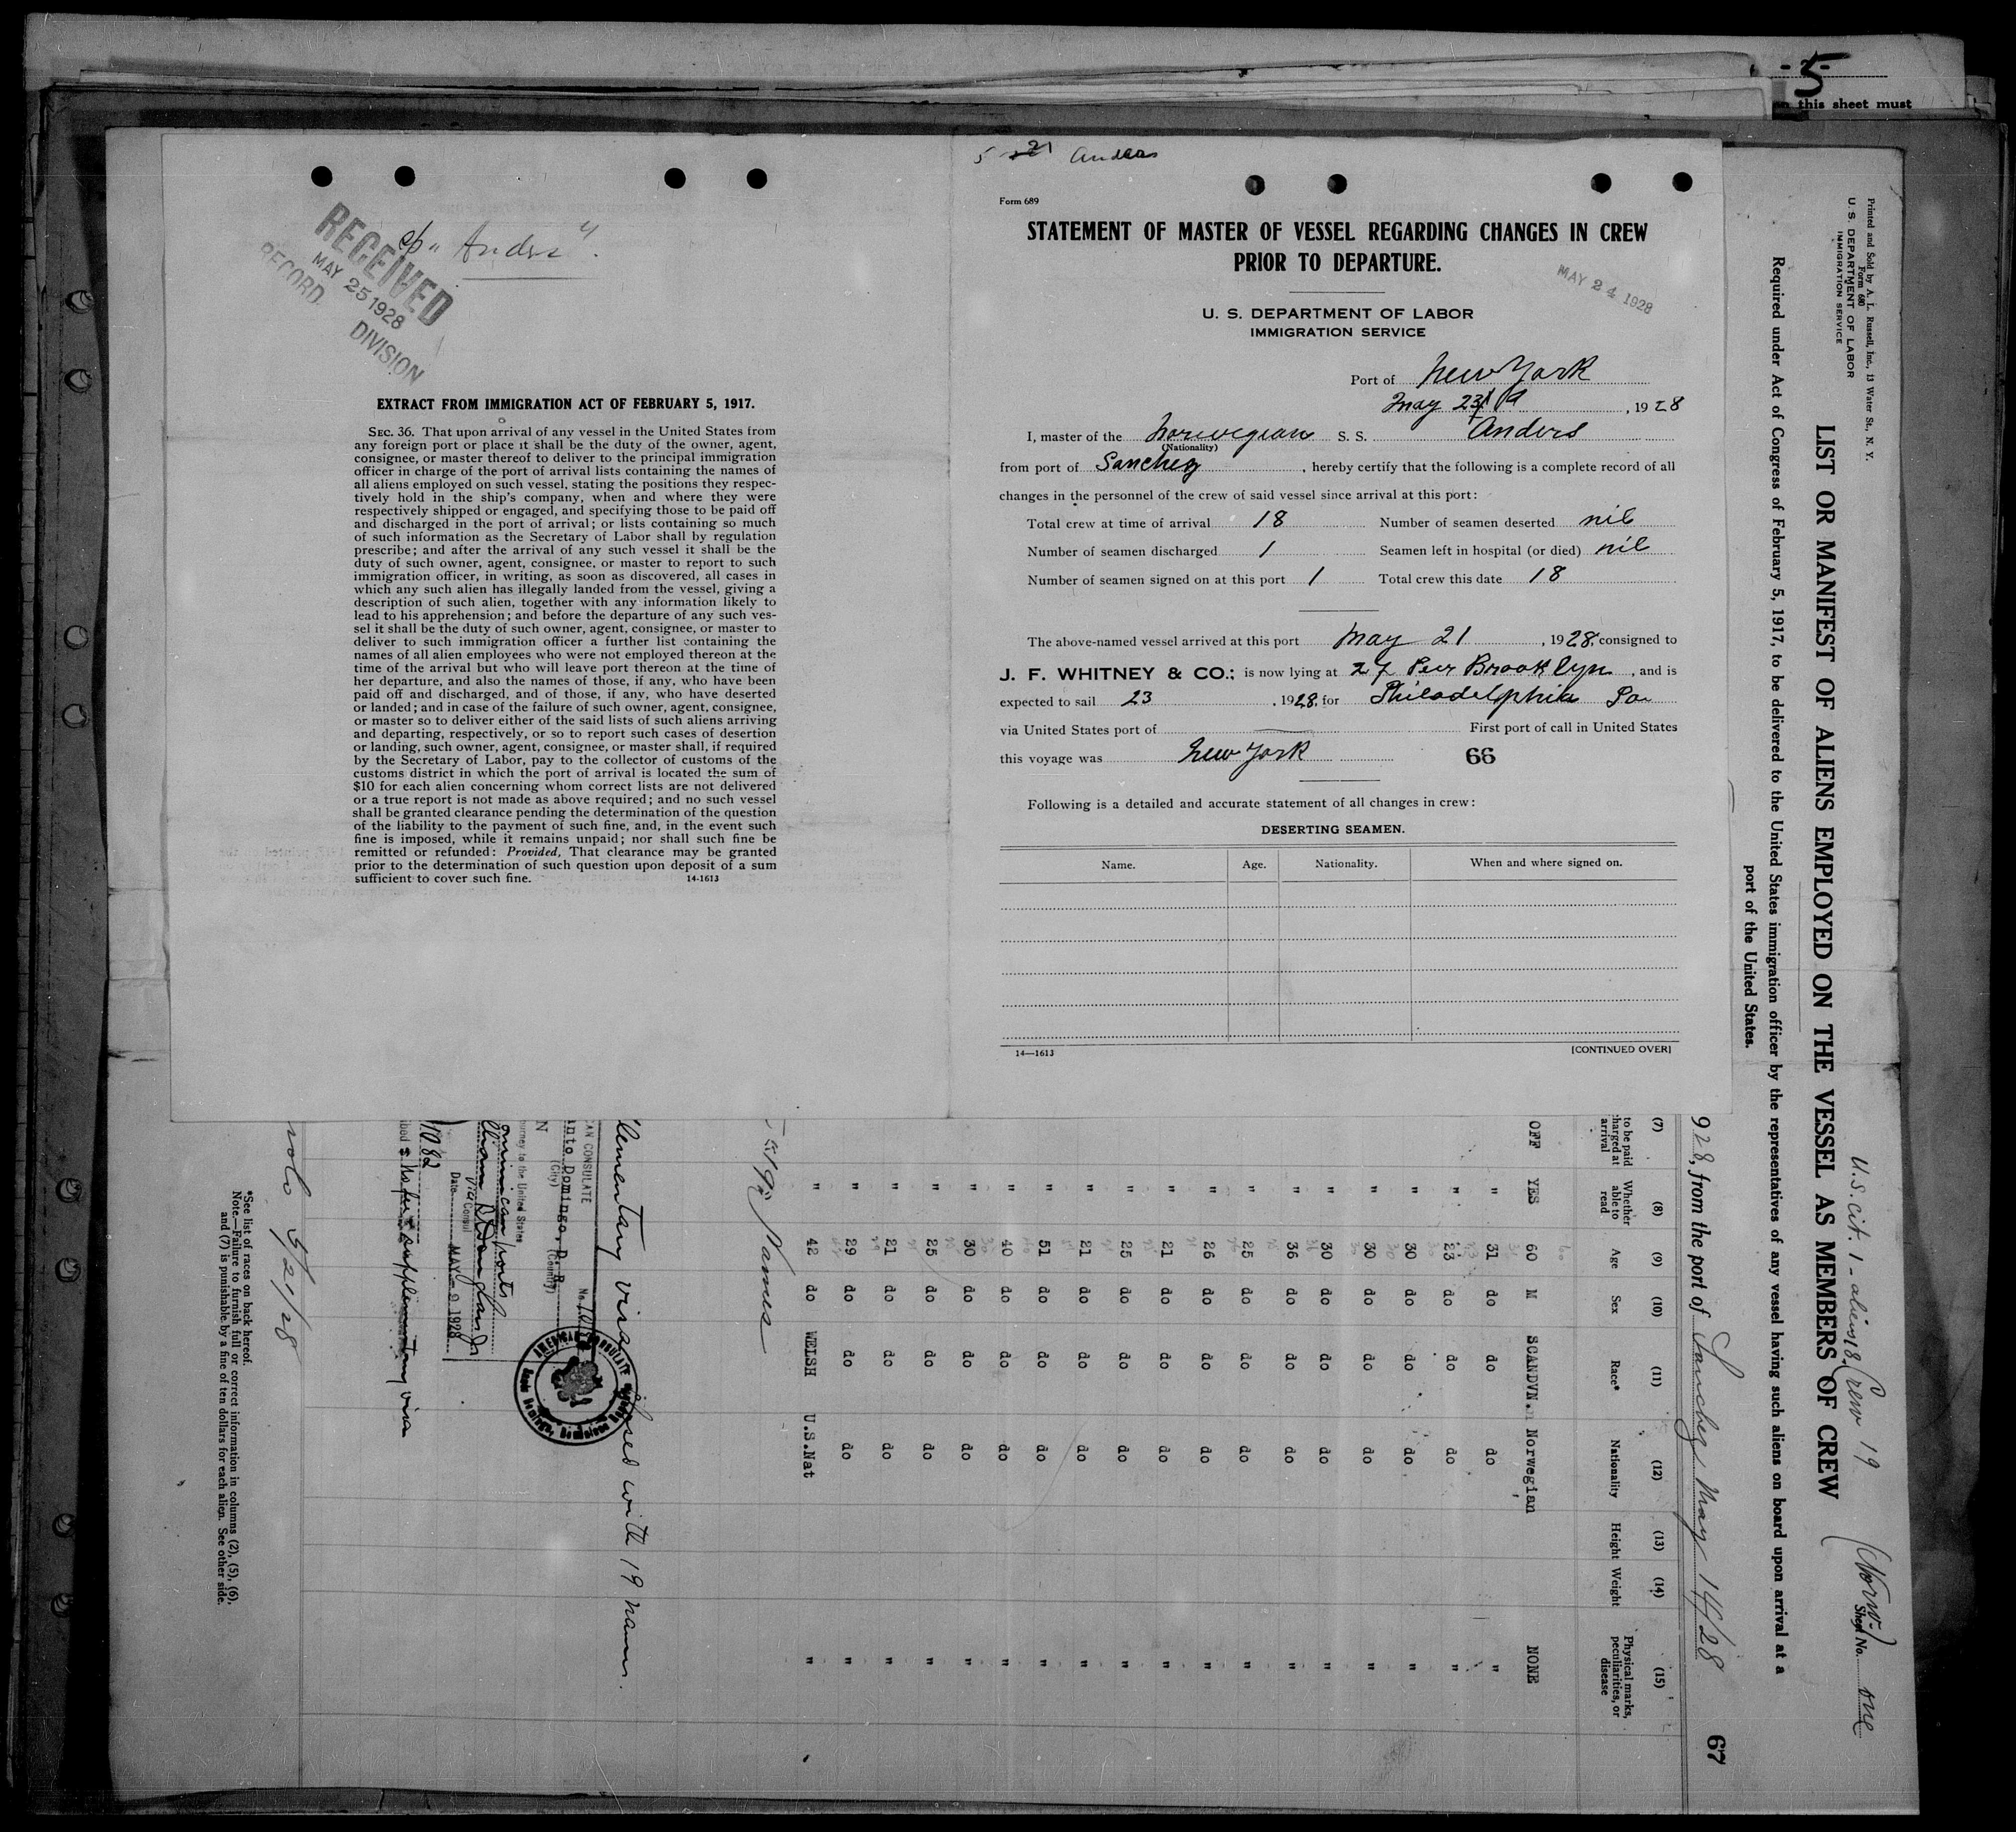 5
on this sheet must
s/s "Anders".
RECEIVED
MAY 25 1928
RECORD DIVISION
EXTRACT FROM IMMIGRATION ACT OF FEBRUARY 5, 1917.
SEC. 36. That upon arrival of any vessel in the United States from
any foreign port or place it shall be the duty of the owner, agent,
consignee, or master thereof to deliver to the principal immigration
officer in charge of the port of arrival lists containing the names of
all aliens employed on such vessel, stating the positions they respec-
tively hold in the ship's company, when and where they were
respectively shipped or engaged, and specifying those to be paid off
and discharged in the port of arrival; or lists containing so much
of such information as the Secretary of Labor shall by regulation
prescribe; and after the arrival of any such vessel it shall be the
duty of such owner, agent, consignee, or master to report to such
immigration officer, in writing, as soon as discovered, all cases in
which any such alien has illegally landed from the vessel, giving a
description of such alien, together with any information likely to
lead to his apprehension; and before the departure of any such ves-
sel it shall be the duty of such owner, agent, consignee, or master to
deliver to such immigration officer a further list containing the
names of all alien employees who were not employed thereon at the
time of the arrival but who will leave port thereon at the time of
her departure, and also the names of those, if any, who have been
paid off and discharged, and of those, if any, who have deserted
or landed; and in case of the failure of such owner, agent, consignee,
or master so to deliver either of the said lists of such aliens arriving
and departing, respectively, or so to report such cases of desertion
or landing, such owner, agent, consignee, or master shall, if required
by the Secretary of Labor, pay to the collector of customs of the
customs district in which the port of arrival is located the sum of
$10 for each alien concerning whom correct lists are not delivered
or a true report is not made as above required; and no such vessel
shall be granted clearance pending the determination of the question
of the liability to the payment of such fine, and, in the event such
fine is imposed, while it remains unpaid; nor shall such fine be
remitted or refunded: Provided, That clearance may be granted
prior to the determination of such question upon deposit of a sum
sufficient to cover such fine. 14-1613
5 21 Anders
Form 689
STATEMENT OF MASTER OF VESSEL REGARDING CHANGES IN CREW
PRIOR TO DEPARTURE.
MAY 24 1928
U. S. DEPARTMENT OF LABOR
IMMIGRATION SERVICE
Port of New York
May 23, 1928
I, master of the Norwegian S. S. Anders
(Nationality)
from port of Sanchez, hereby certify that the following is a complete record of all
changes in the personnel of the crew of said vessel since arrival at this port:
Total crew at time of arrival 18 Number of seamen deserted nil
Number of seamen discharged 1 Seamen left in hospital (or died) nil
Number of seamen signed on at this port 1 Total crew this date 18
The above-named vessel arrived at this port May 21, 1928, consigned to
J. F. WHITNEY & CO.; is now lying at 27 Peer Brooklyn, and is
expected to sail 23, 1928, for Philadelphia Pa
via United States port of First port of call in United States
this voyage was New York 66
Following is a detailed and accurate statement of all changes in crew:
DESERTING SEAMEN.
Name. Age. Nationality. When and where signed on.
14—1613 [CONTINUED OVER]
Printed and Sold by A. L. Russell, Inc., 13 Water St., N. Y.
Form 680
U. S. DEPARTMENT OF LABOR
IMMIGRATION SERVICE
U.S. cit. 1 - aliens 18. Crew 19
(Norw.)
Sheet No. one
LIST OR MANIFEST OF ALIENS EMPLOYED ON THE VESSEL AS MEMBERS OF CREW
Required under Act of Congress of February 5, 1917, to be delivered to the United States immigration officer by the representatives of any vessel having such aliens on board upon arrival at a
port of the United States.
928, from the port of Sanchez May 14/28
67
(7) (8) (9) (10) (11) (12) (13) (14) (15)
to be paid charged at arrival Whether able to read Age Sex Race* Nationality Height Weight Physical marks, peculiarities, or disease
OFF YES 60 M SCANDVN.n Norwegian NONE
" 31 do do do "
" 23 do do do "
" 30 do do do "
" 30 do do do "
" 30 do do do "
" 36 do do do "
" 25 do do do "
" 26 do do do "
" 21 do do do "
" 25 do do do "
" 21 do do do "
" 51 do do do "
" 40 do do do "
" 30 do do do "
" 25 do do do "
" 21 do do do "
" 29 do do do "
" 42 do WELSH U.S.Nat "
19 Names
lementary visa closed with 19 names.
AN CONSULATE
anto Domingo, D. R.
(City) (Country)
rney to the United States
ominican ports
Vice Consul
Date MAY 9 1928
AMERICAN CONSULATE
1082
No fee supplementary visa
5/21/28
*See list of races on back hereof.
Note.—Failure to furnish full or correct information in columns (2), (5), (6),
and (7) is punishable by a fine of ten dollars for each alien. See other side.